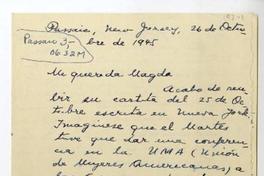 Passaic, New Jersey, 26 de Octu-
bre de 1945
Passaic 3-
0632M
Mi querida Magda
Acabo de reci-
bir su cartita del 25 de Oc-
tubre escrita en Nueva York.
Imagínese que el Martes
tuve que dar una conferen-
cia en la UMA (Unión
de Mujeres Americanas), a